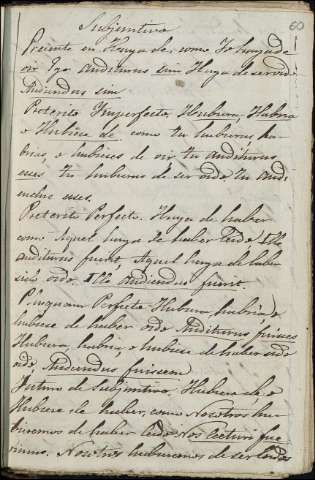 Subjuntivo
60
Preciente en Haya de, como Yo haya de
oir Ego auditurus sim Haya de ser oido
Audiendus sim
Preterito Ymperfecto, Hubiera, Habria
o Hubiese de como tu hubieras ha-
brias, o hubieses de oir tu auditurus
eses tu hubieras de ser oido tu audi
endus eses.
Preterito Perfecto. Haya de haber
como Aquel haya de haber leido, Ille
auditurus fuerit, Aquel haya de haber
sido oido. Ille audiendus fuerit.
Plusquam Perfecto Hubiera, habria, o
hubiese de haber oido Auditurus fuises
Hubiera, habria, o hubiese de haber sido
oido Audiendus fuissem
Futuro de Subjuntivo, Hubiere de, o
Hubiere de haber, como Nosotros hu-
bieremos de haber leido Nos Lecturi fue
rimus. Nosotros hubieremos de ser leidos